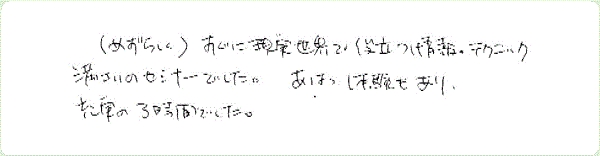 (めずらしく) すぐに現実世界で役立つ情報・テクニック
満さいのセミナーでした。 体験もあり、
充実の3時間でした。